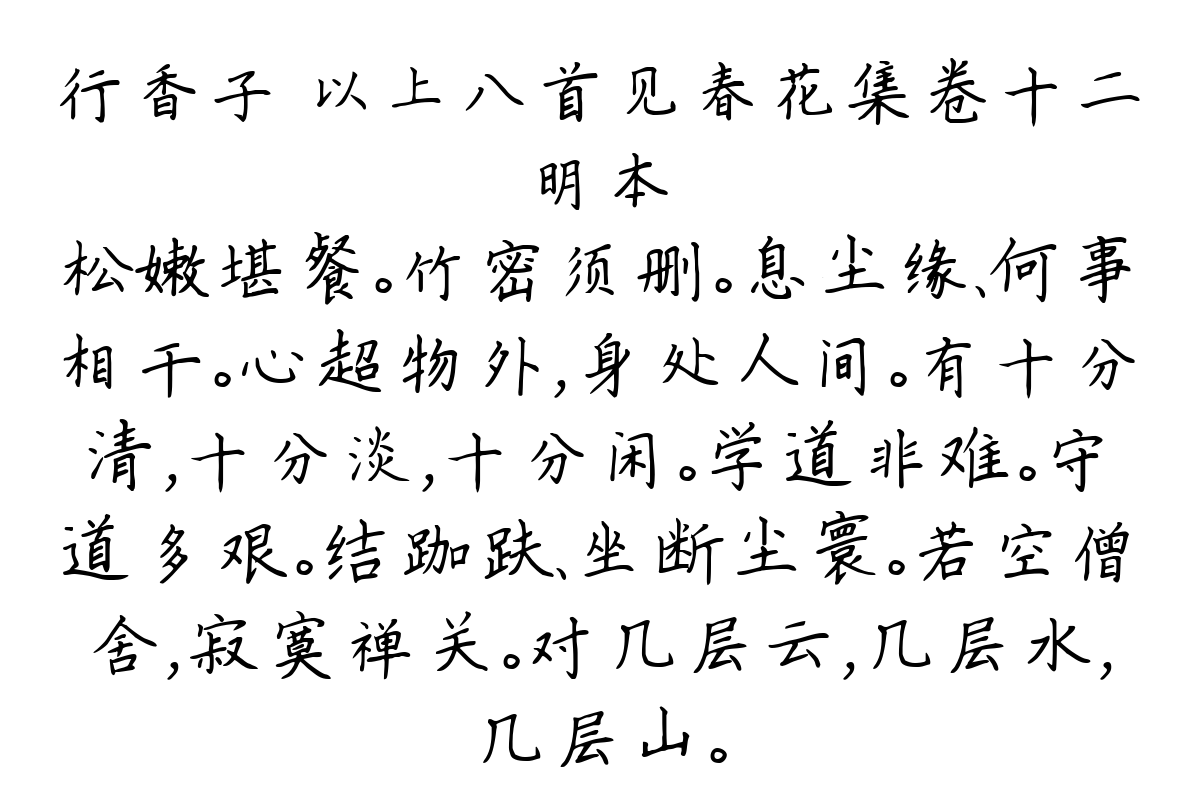 行香子 以上八首见春花集卷十二
明本
松嫩堪餐。竹密须删。息尘缘、何事
相干。心超物外,身处人间。有十分
清,十分淡,十分闲。学道非难。守
道多艰。结跏趺、坐断尘寰。若空僧
舍,寂寞禅关。对几层云,几层水,
几层山。